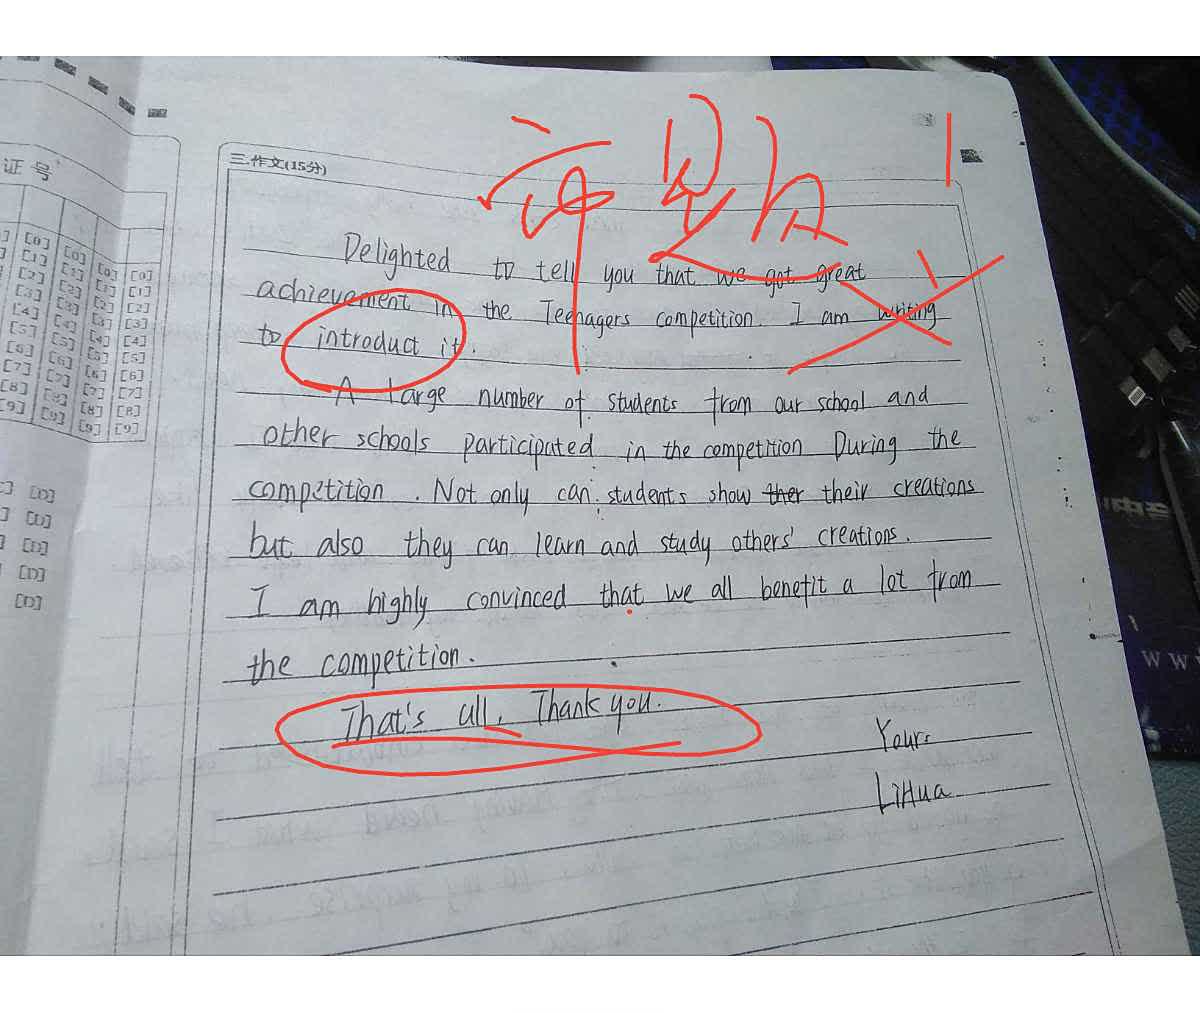 证号
[0] [0] [0] [0]
[1] [1] [1] [1]
[2] [2] [2] [2]
[3] [3] [3] [3]
[4] [4] [4] [4]
[5] [5] [5] [5]
[6] [6] [6] [6]
[7] [7] [7] [7]
[8] [8] [8] [8]
[9] [9] [9] [9]
[D]
[D]
[D]
[D]
[D]
三.作文(15分)
Delighted to tell you that we got great
achievement in the Teenagers competition. I am writing
to introduct it.
A large number of students from our school and
other schools participated in the competition During the
competition. Not only can students show ther their creations
but also they can learn and study others' creations.
I am highly convinced that we all benefit a lot from
the competition.
That's all. Thank you.
Yours
LiHua
WWW